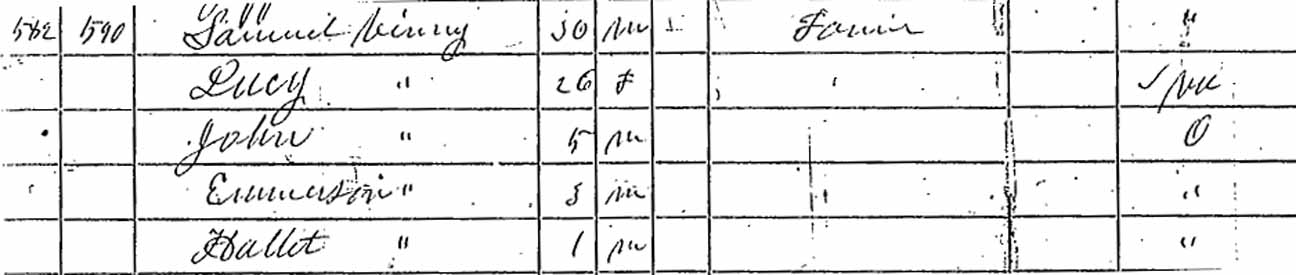 582 590 Samuel Kinny 30 m Farmer "
Lucy " 26 f "
John " 5 m O
Emmerson " 3 m " "
Hallet " 1 m "